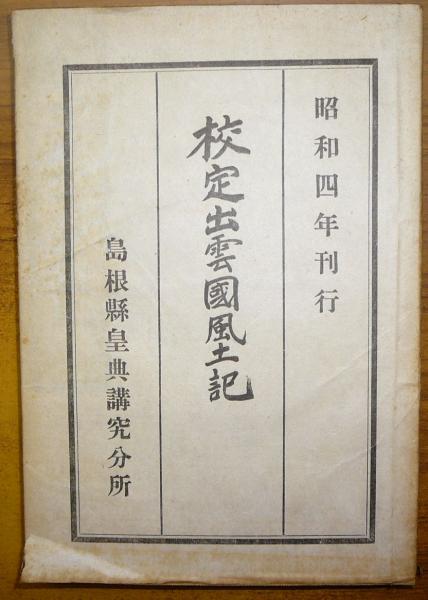 昭和四年刊行
校定出雲國風土記
島根縣皇典講究分所